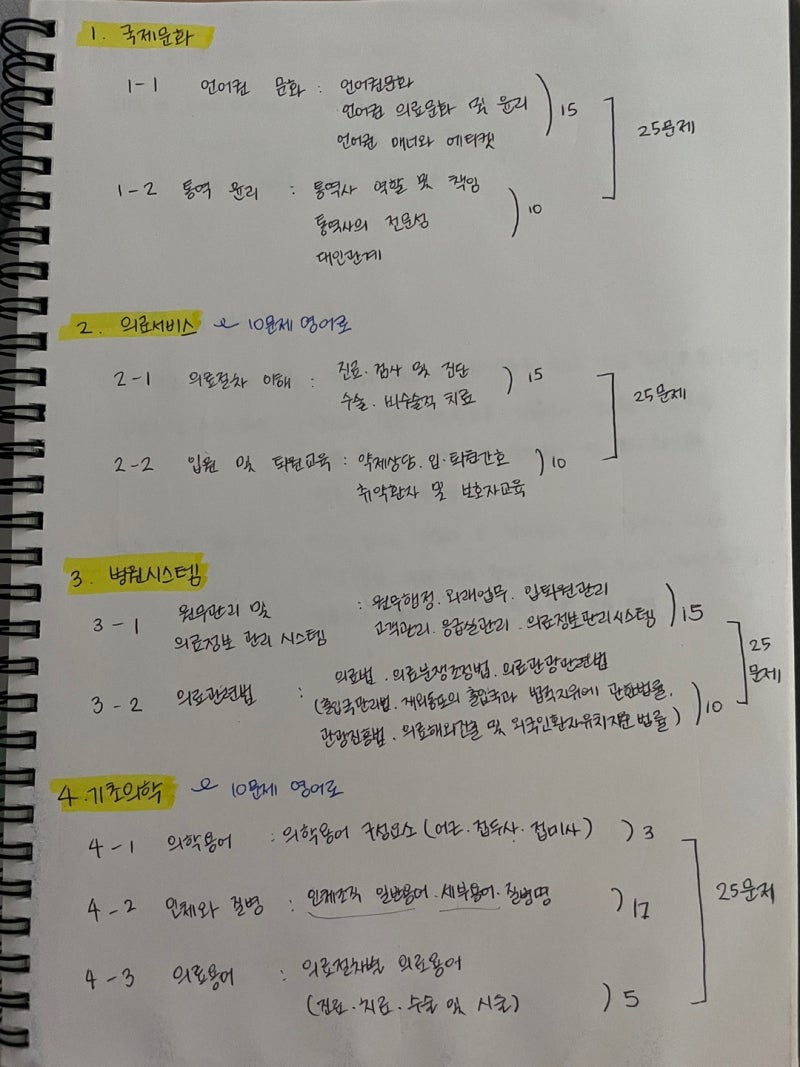 1. 국제문화
1-1 언어권 문화 : 언어권문화
언어권 의료문화 및 윤리 ) 15 ] 25문제
언어권 매너와 에티켓
1-2 통역 윤리 : 통역사 역할 및 책임
통역사의 전문성 ) 10
대인관계
2. 의료서비스 10문제 영어로
2-1 의료절차 이해 : 진료·검사 및 진단
수술·비수술적 치료 ) 15 ] 25문제
2-2 입원 및 퇴원교육 : 약제상담. 입·퇴원간호 ) 10
취약환자 및 보호자교육
3. 병원시스템
3-1 원무관리 및 : 원무행정. 외래업무. 입퇴원관리
의료정보 관리 시스템 고객관리. 응급실관리. 의료정보관리시스템 ) 15
3-2 의료관련법 : 의료법. 의료분쟁조정법. 의료관광관련법 ] 25문제
(출입국관리법. 재외동포의 출입국과 법적지위에 관한법률.
관광진흥법. 의료해외진출 및 외국인환자유치지원 법률) ) 10
4. 기초의학 10문제 영어로
4-1 의학용어 : 의학용어 구성요소 (어근·접두사·접미사) ) 3
4-2 인체와 질병 : 인체조직 일반용어. 세부용어. 질병명 ) 17 ] 25문제
4-3 의료용어 : 의료절차별 의료용어
(진료·치료·수술 및 시술) ) 5